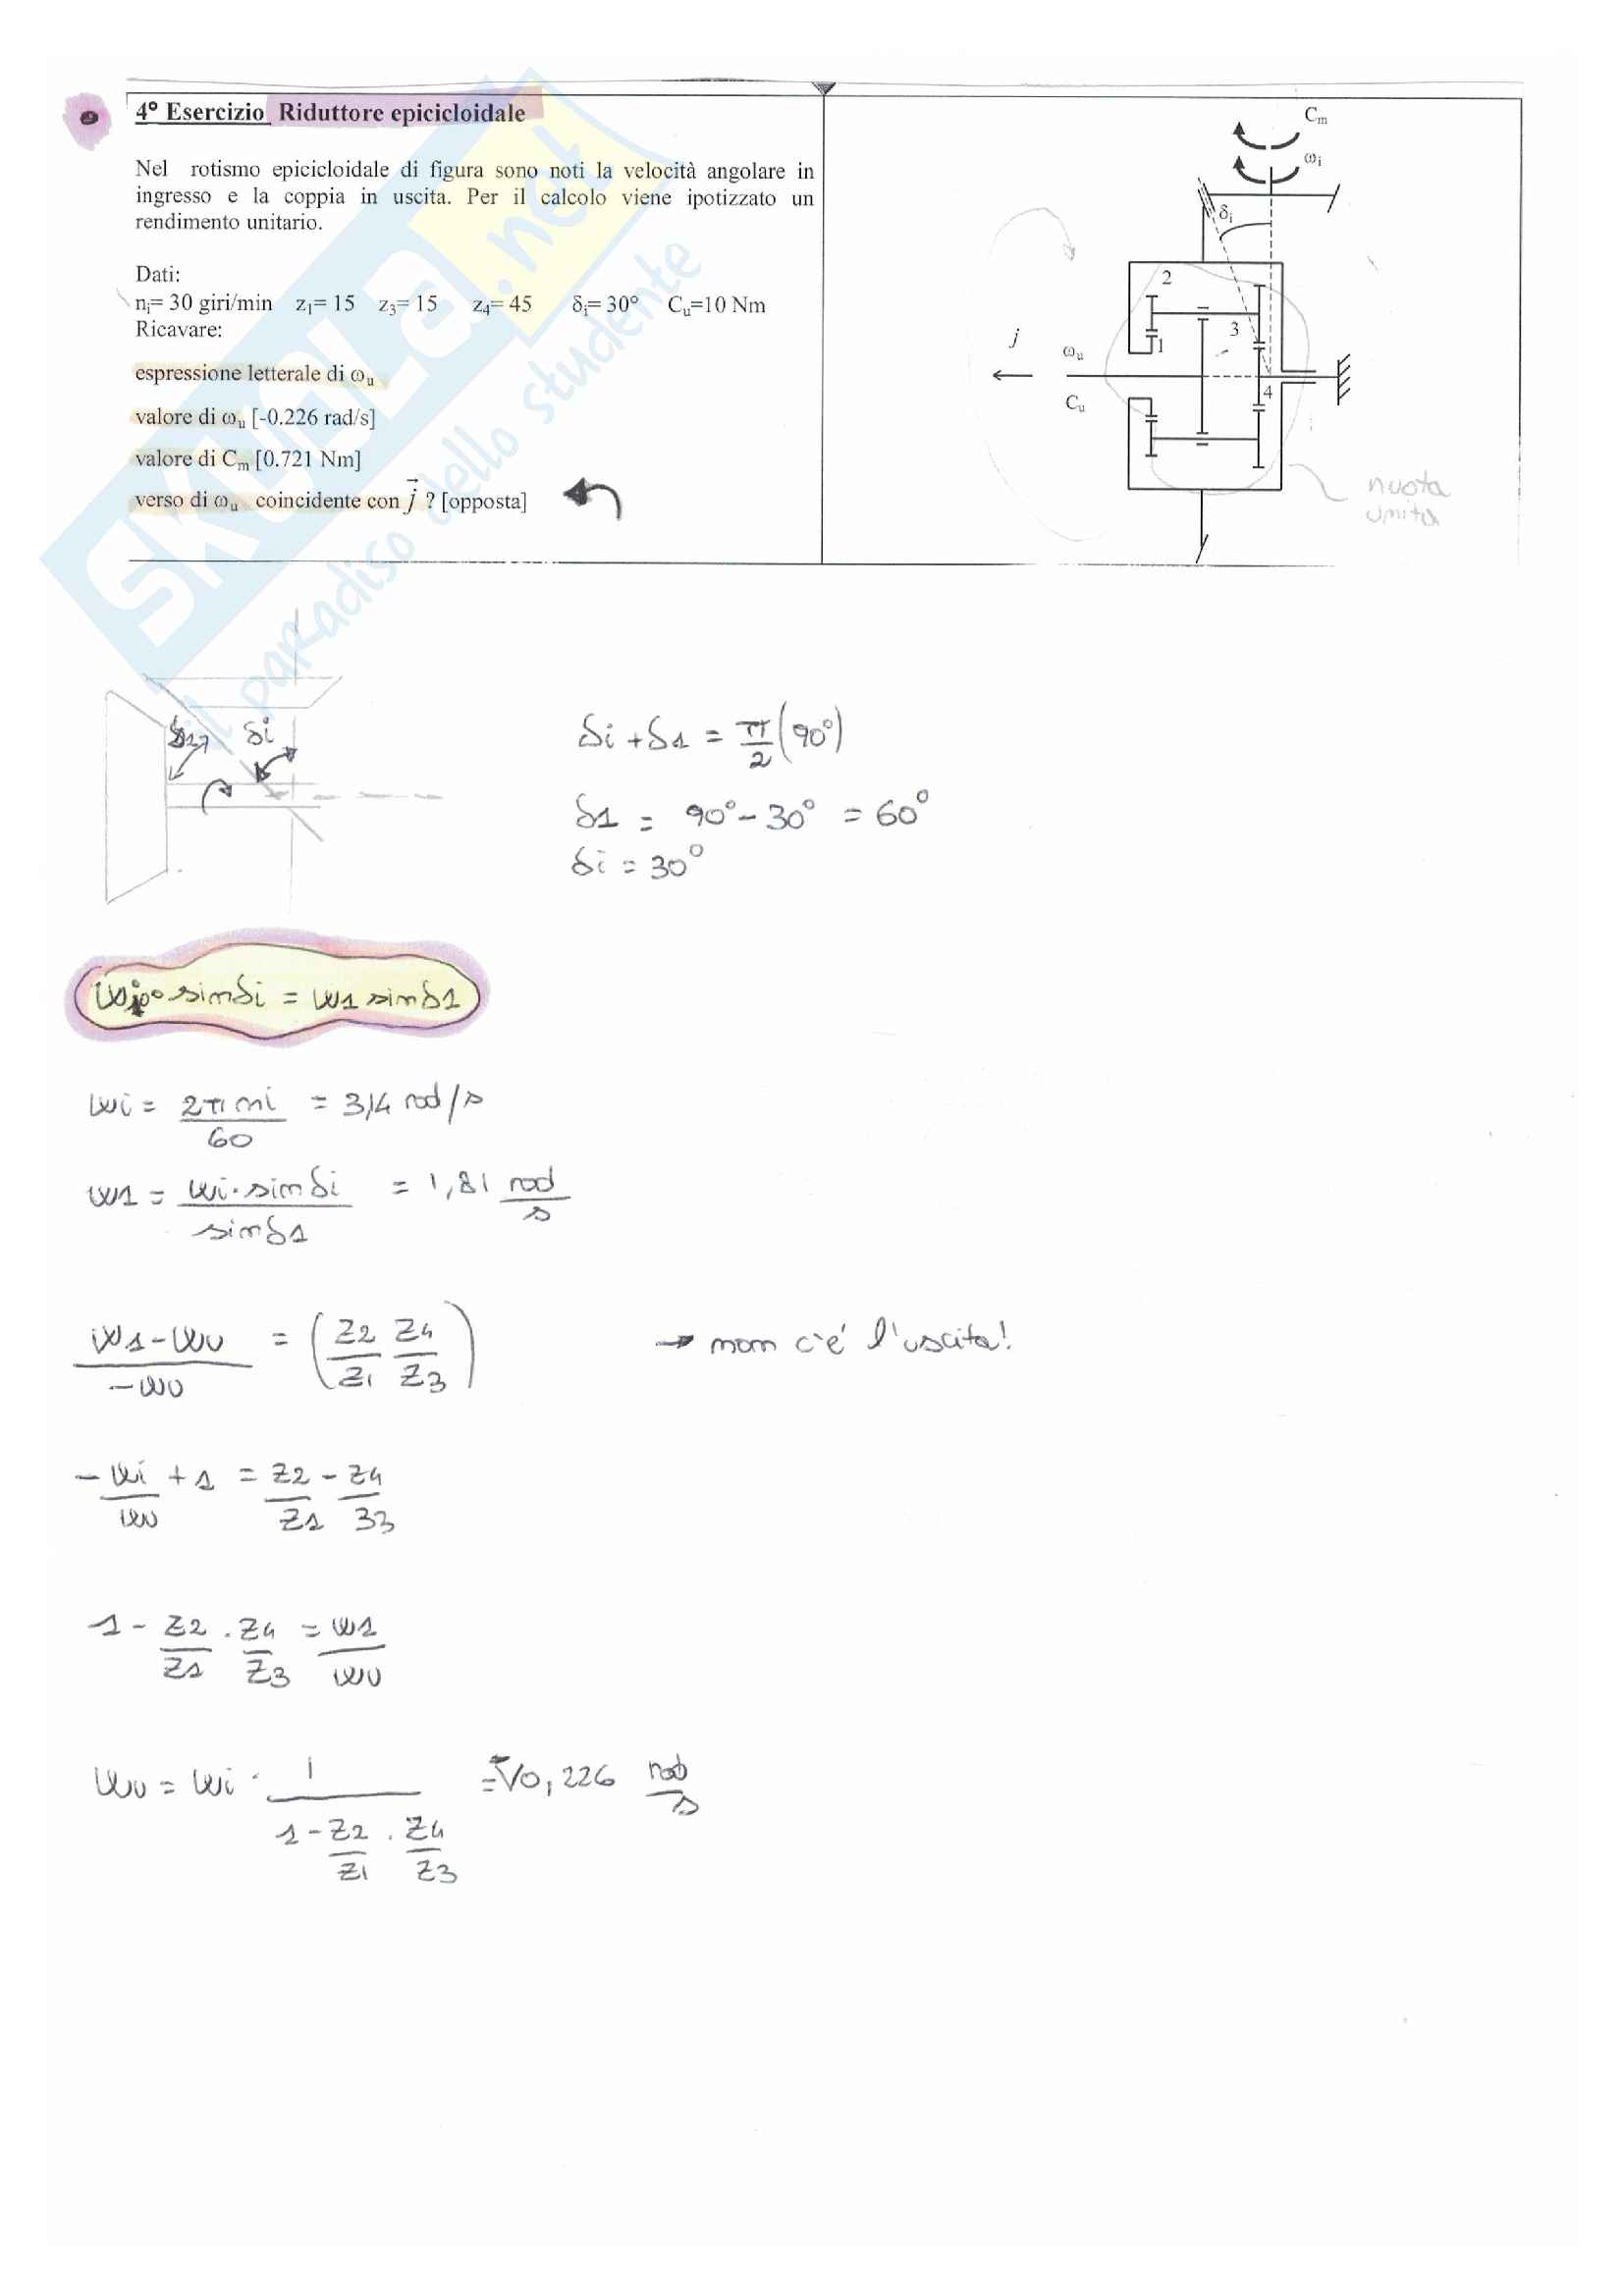 4° Esercizio Riduttore epicicloidale
Nel rotismo epicicloidale di figura sono noti la velocità angolare in
ingresso e la coppia in uscita. Per il calcolo viene ipotizzato un
rendimento unitario.
Dati:
nᵢ= 30 giri/min z₁= 15 z₃= 15 z₄= 45 δᵢ= 30° Cᵤ=10 Nm
Ricavare:
espressione letterale di ωᵤ
valore di ωᵤ [-0.226 rad/s]
valore di Cₘ [0.721 Nm]
verso di ωᵤ coincidente con j⃗ ? [opposta]
Cₘ
ωᵢ
δᵢ
2
3
1
j
ωᵤ
4
Cᵤ
ruota
unita
SKUOLA.net
il paradiso dello studente
δ1 δi
δi + δ1 = π/2 (90°)
δ1 = 90° - 30° = 60°
δi = 30°
ωi · sin δi = ω1 sin δ1
ωi = 2π ni / 60 = 3,14 rad/s
ω1 = ωi · sin δi / sin δ1 = 1,81 rad/s
ω1 - ωu / -ωu = (z2/z1 z4/z3) → non c'é l'uscita!
- ωi/ωu + 1 = z2/z1 - z4/33
1 - z2/z1 · z4/z3 = ω1/ωu
ωu = ωi · 1 / 1 - z2/z1 · z4/z3 = -0,226 rad/s